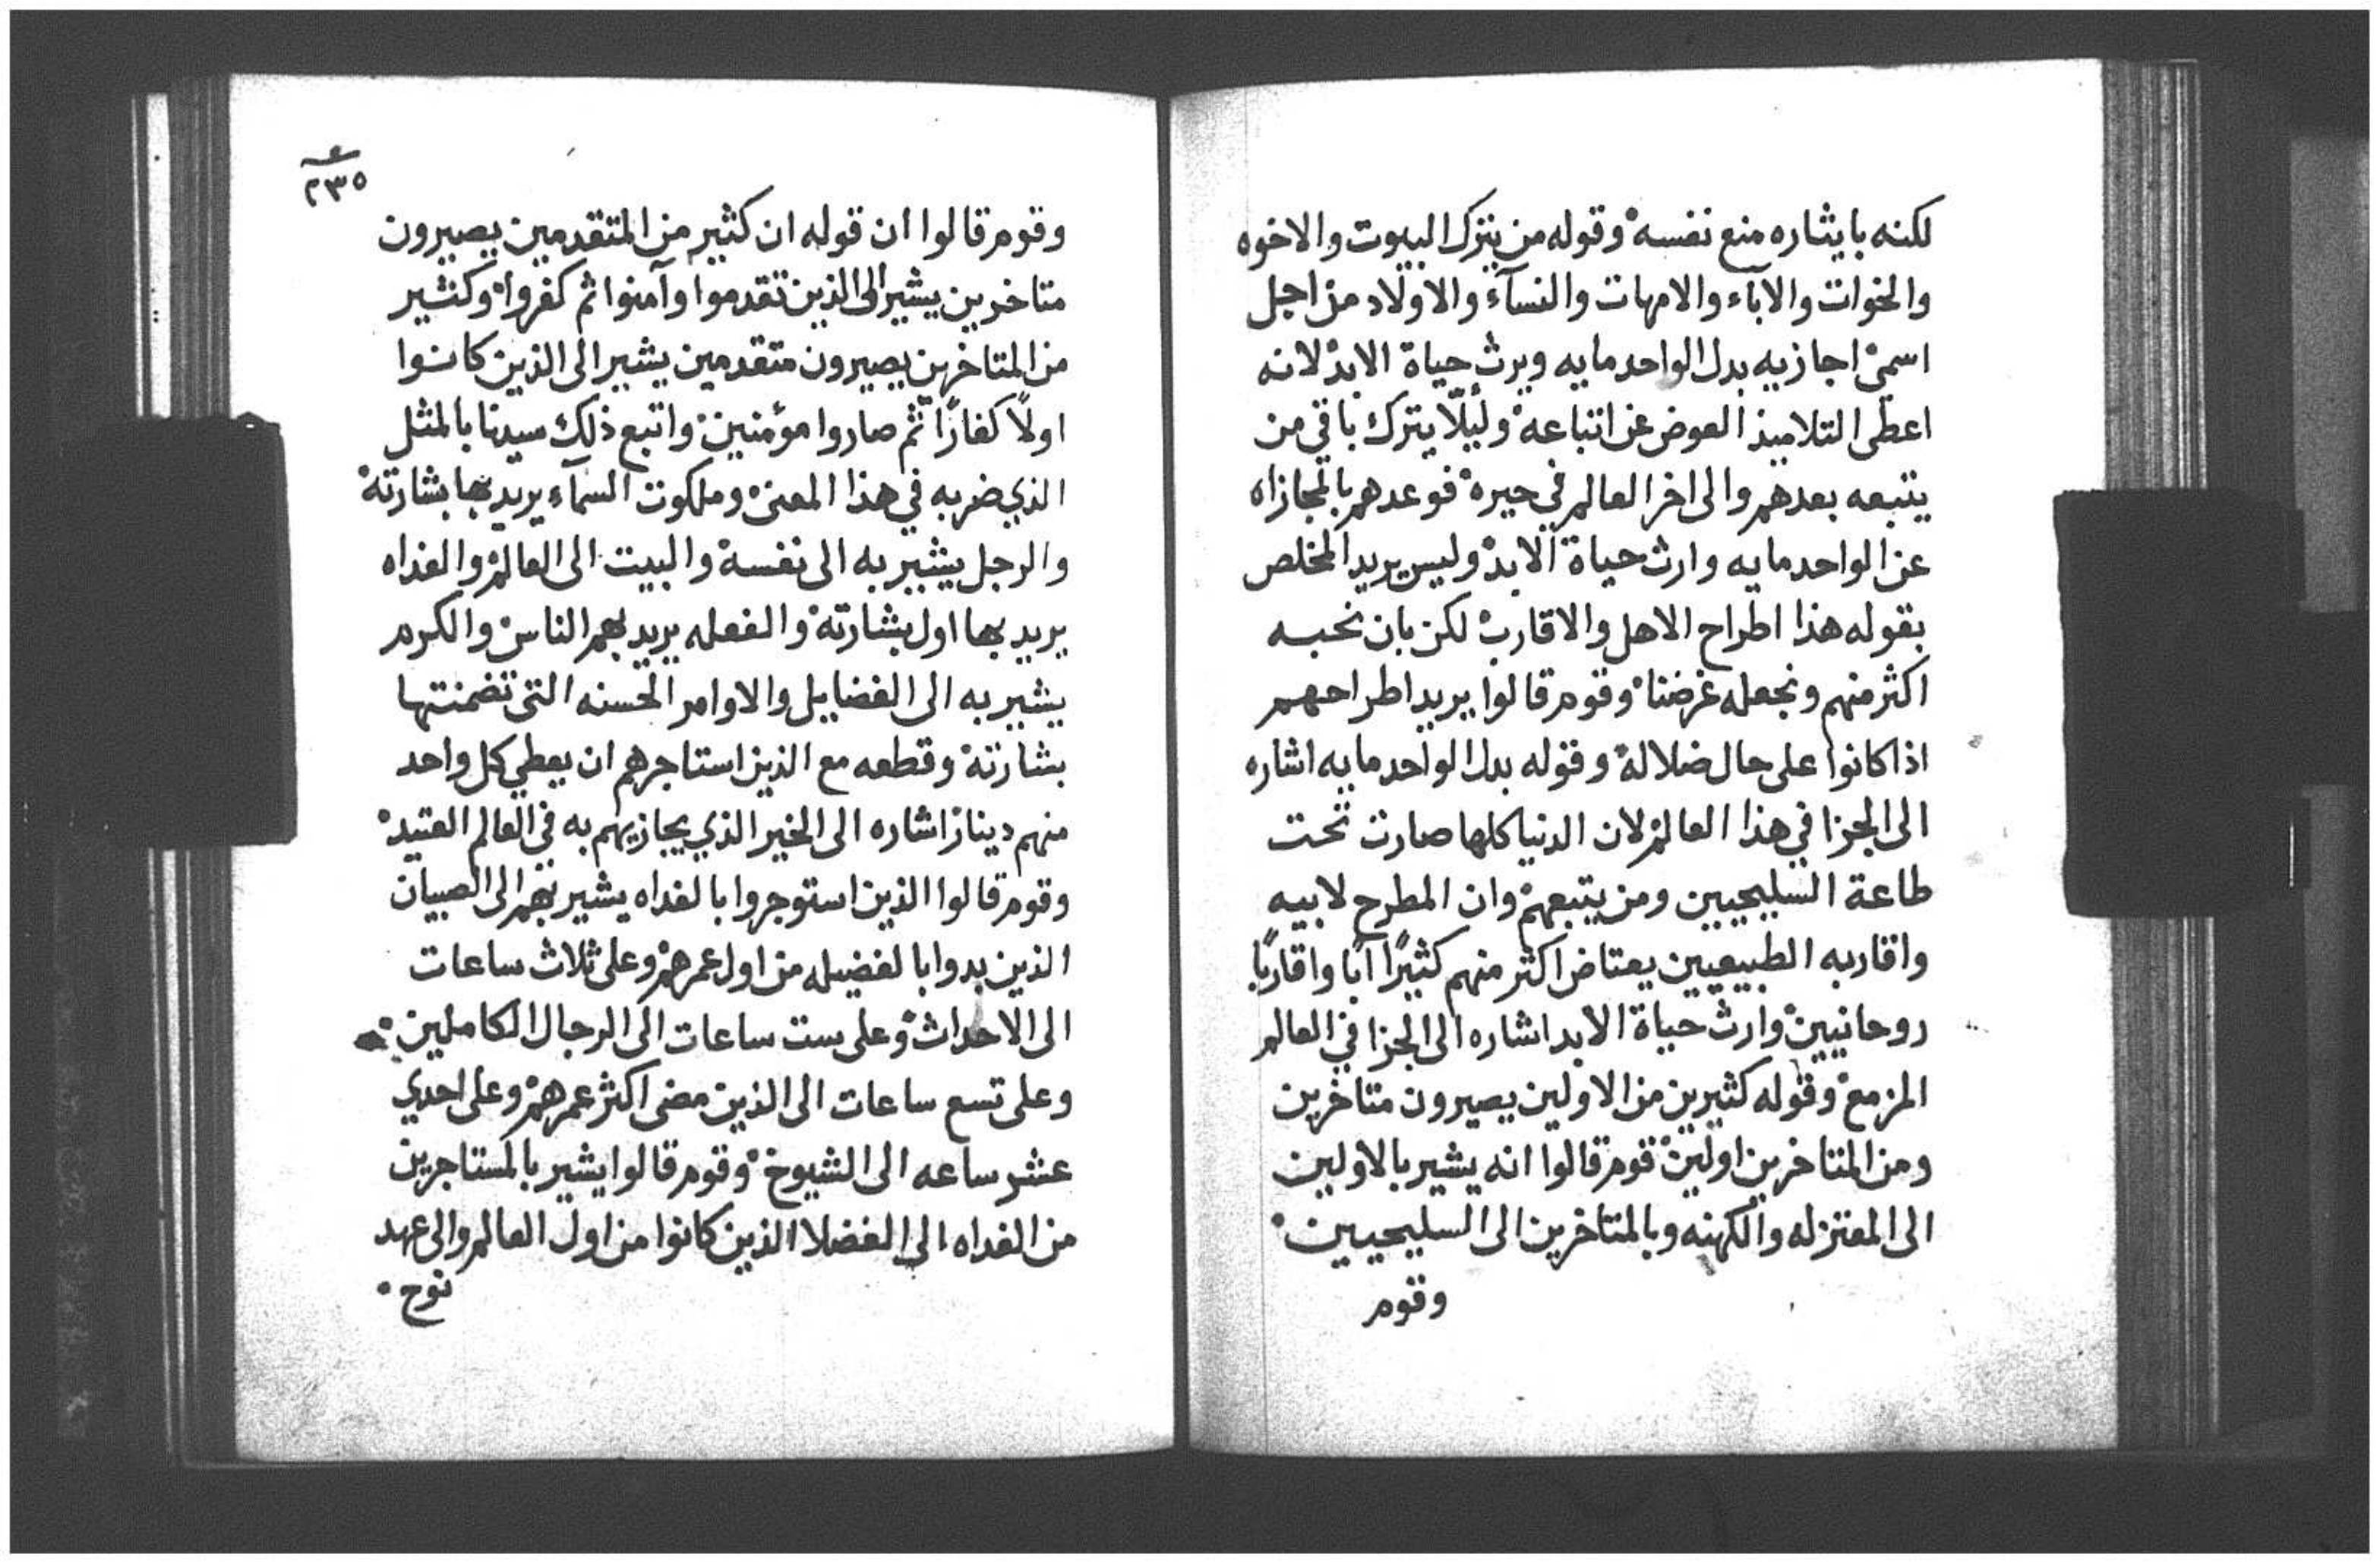 لكنه بايثاره منع نفسه وقوله من يترك البيوت والاخوه
والخوات والآباء والامهات والنسآء والاولاد من اجل
اسمي اجازيه بدل الواحد مايه ويرث حياة الابد لانه
اعطى التلاميذ العوض عن اتباعه وليلّا يترك باقي من
يتبعه بعدهم والى اخر العالم في حيره فوعدهم بالمجازاه
عن الواحد مايه وارث حياة الابد وليس يريد المخلص
بقوله هذا اطراح الاهل والاقارب لكن بان نحبه
اكثر منهم ونجعله غرضنا وقوم قالوا يريد اطراحهم
اذا كانوا على حال ضلاله وقوله بدل الواحد مايه اشاره
الى الجزا في هذا العالم لان الدنيا كلها صارت تحت
طاعة السليحيين ومن يتبعهم وان المطرح لابيه
واقاربه الطبيعيين يعتاض اكثر منهم كثيرًا آبًا واقاربًا
روحانيين وارث حياة الابد اشاره الى الجزا في العالم
المزمع وقوله كثيرين من الاولين يصيرون متاخرين
ومن المتاخرين اولين قوم قالوا انه يشير بالاولين
الى المعتزله والكهنه وبالمتاخرين الى السليحيين
وقوم
٢٣٥
وقوم قالوا ان قوله ان كثير من المتقدمين يصيرون
متاخرين يشير الى الذين تقدموا وآمنوا ثم كفروا وكثير
من المتاخرين يصيرون متقدمين يشير الى الذين كانوا
اولًا كفارًا ثم صاروا مؤمنين واتبع ذلك سيدنا بالمثل
الذي ضربه في هذا المعنى وملكوت السمآء يريد بها بشارته
والرجل يشير به الى نفسه والبيت الى العالم والغداه
يريد بها اول بشارته والفعله يريد بهم الناس والكرم
يشير به الى الفضايل والاوامر الحسنه التي تضمنتها
بشارته وقطعه مع الذين استاجرهم ان يعطي كل واحد
منهم دينار اشاره الى الخير الذي يجازيهم به في العالم العتيد
وقوم قالوا الذين استوجروا بالغداه يشير بهم الى الصبيان
الذين بدوا بالفضيله من اول عمرهم وعلى ثلاث ساعات
الى الاحداث وعلى ست ساعات الى الرجال الكاملين
وعلى تسع ساعات الى الذين مضى اكثر عمرهم وعلى احدي
عشر ساعه الى الشيوخ وقوم قالوا يشير بالمستاجرين
من الغداه الى الفضلا الذين كانوا من اول العالم والى عهد
نوح